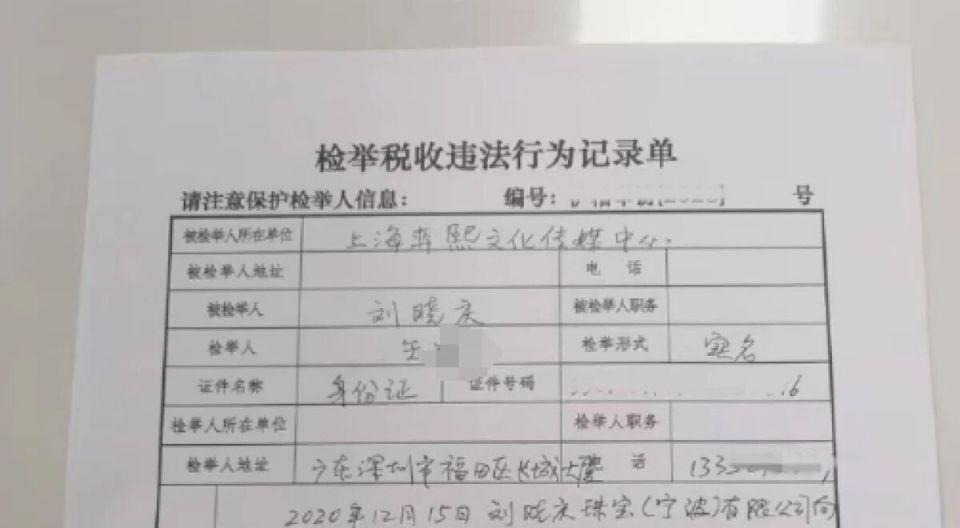 检举税收违法行为记录单
请注意保护检举人信息： 编号： 号
被检举人所在单位 上海弈熙文化传媒中心.
被检举人地址 电 话
被检举人 刘晓庆 被检举人职务
检举人 检举形式 实名
证件名称 身份证 证件号码 16
检举人所在单位 检举人职务
检举人地址 广东深圳市福田区长城大 话 133
2020年12月15日 刘晓庆珠宝(宁波)有限公司向